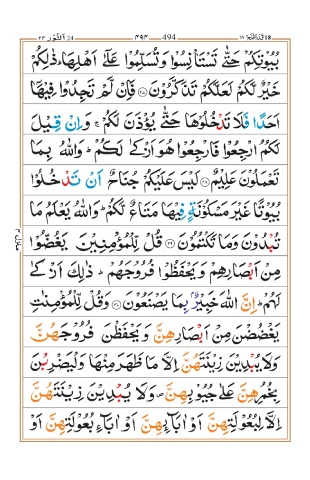 النُّوْر ٢٤ ٤٩٤ 494 قَدْ اَفْلَحَ ١٨
بُيُوْتِكُمْ حَتّٰى تَسْتَاْنِسُوْا وَتُسَلِّمُوْا عَلٰٓى اَهْلِهَا ؕ ذٰلِكُمْ
خَيْرٌ لَّكُمْ لَعَلَّكُمْ تَذَكَّرُوْنَ ۝۲۷ فَاِنْ لَّمْ تَجِدُوْا فِيْهَاۤ
اَحَدًا فَلَا تَدْخُلُوْهَا حَتّٰى يُؤْذَنَ لَكُمْ ۚ وَاِنْ قِيْلَ
لَكُمُ ارْجِعُوْا فَارْجِعُوْا هُوَ اَزْكٰى لَكُمْ ؕ وَاللّٰهُ بِمَا
تَعْمَلُوْنَ عَلِيْمٌ ۝۲۸ لَيْسَ عَلَيْكُمْ جُنَاحٌ اَنْ تَدْخُلُوْا
بُيُوْتًا غَيْرَ مَسْكُوْنَةٍ فِيْهَا مَتَاعٌ لَّكُمْ ؕ وَاللّٰهُ يَعْلَمُ مَا
تُبْدُوْنَ وَمَا تَكْتُمُوْنَ ۝۲۹ قُلْ لِّلْمُؤْمِنِيْنَ يَغُضُّوْا
مِنْ اَبْصَارِهِمْ وَيَحْفَظُوْا فُرُوْجَهُمْ ؕ ذٰلِكَ اَزْكٰى
لَهُمْ ؕ اِنَّ اللّٰهَ خَبِيْرٌۢ بِمَا يَصْنَعُوْنَ ۝۳۰ وَقُلْ لِّلْمُؤْمِنٰتِ
يَغْضُضْنَ مِنْ اَبْصَارِهِنَّ وَيَحْفَظْنَ فُرُوْجَهُنَّ
وَلَا يُبْدِيْنَ زِيْنَتَهُنَّ اِلَّا مَا ظَهَرَ مِنْهَا وَلْيَضْرِبْنَ
بِخُمُرِهِنَّ عَلٰى جُيُوْبِهِنَّ ۪ وَلَا يُبْدِيْنَ زِيْنَتَهُنَّ
اِلَّا لِبُعُوْلَتِهِنَّ اَوْ اٰبَآئِهِنَّ اَوْ اٰبَآءِ بُعُوْلَتِهِنَّ اَوْ